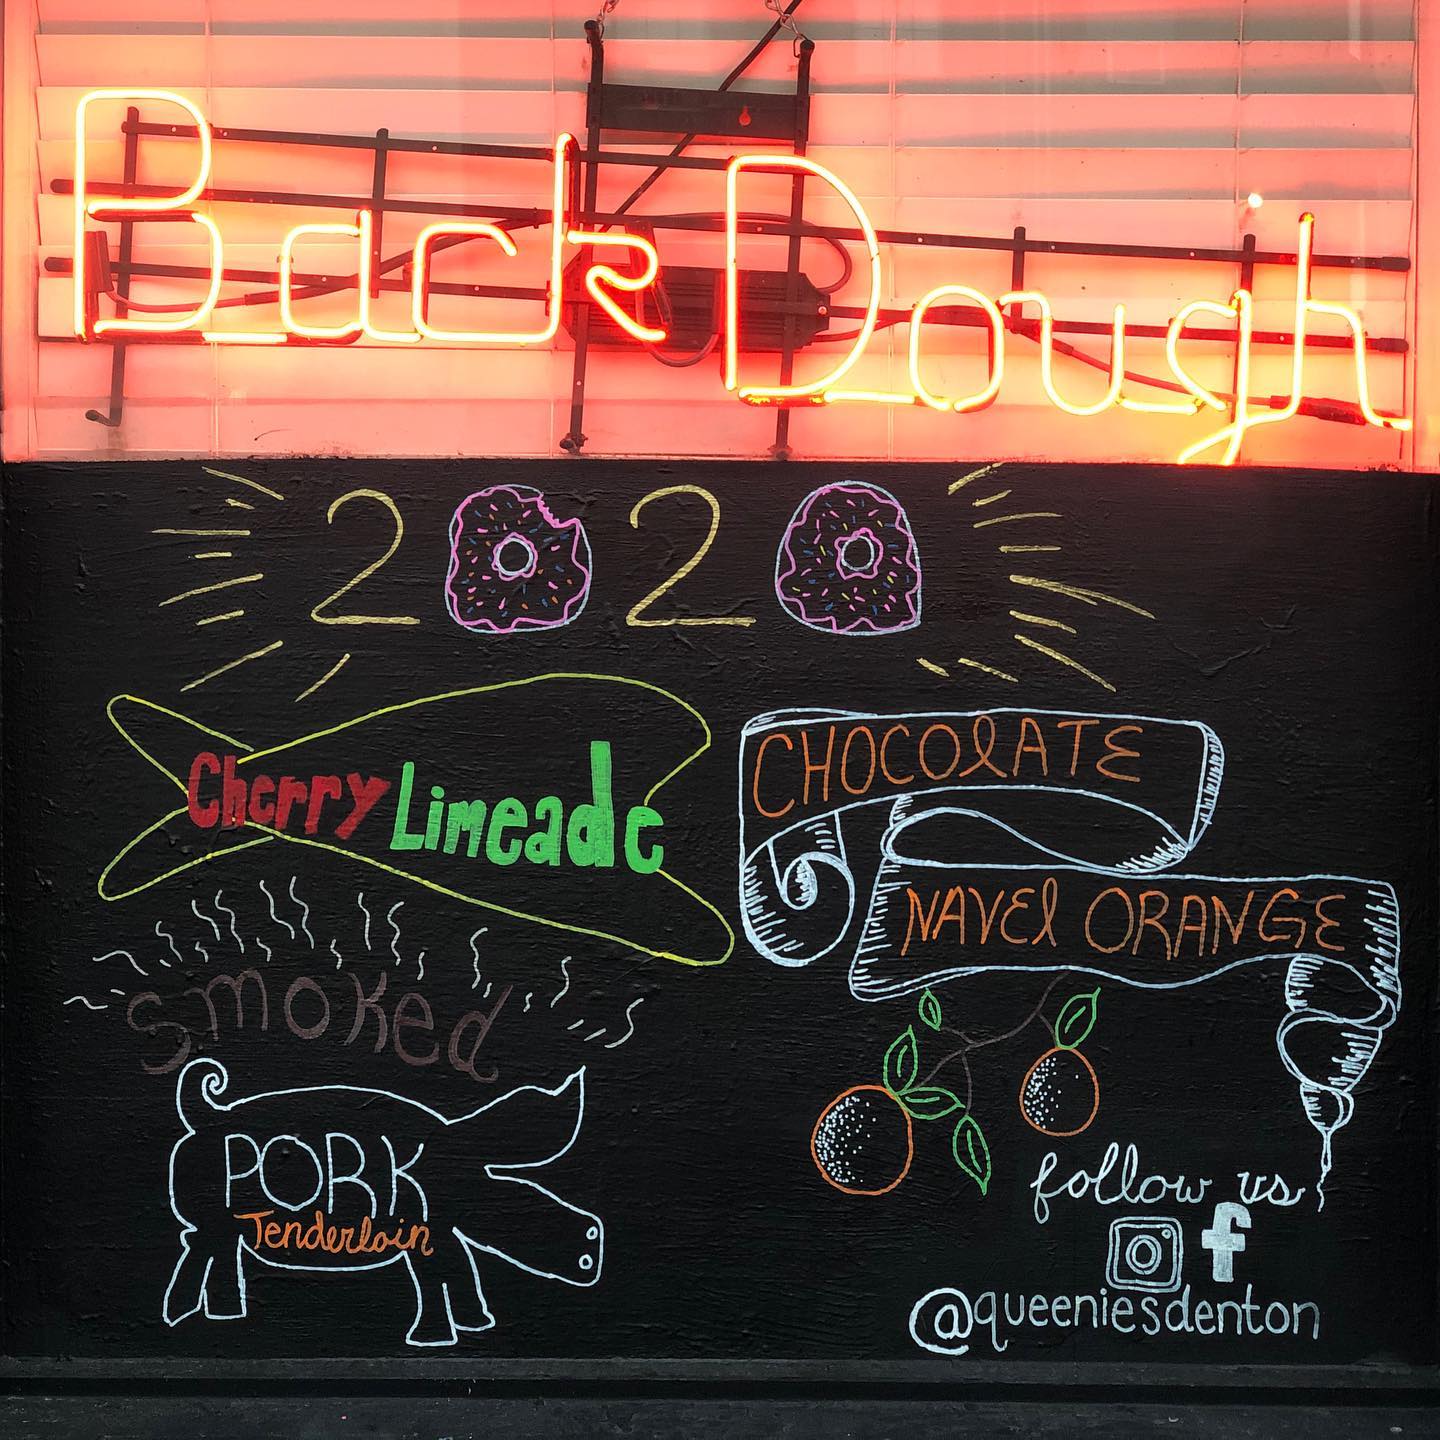 Back Dough
2020
Cherry Limeade
CHOCOLATE
NAVEL ORANGE
Smoked
PORK
Tenderloin
follow us
f
@queeniesdenton